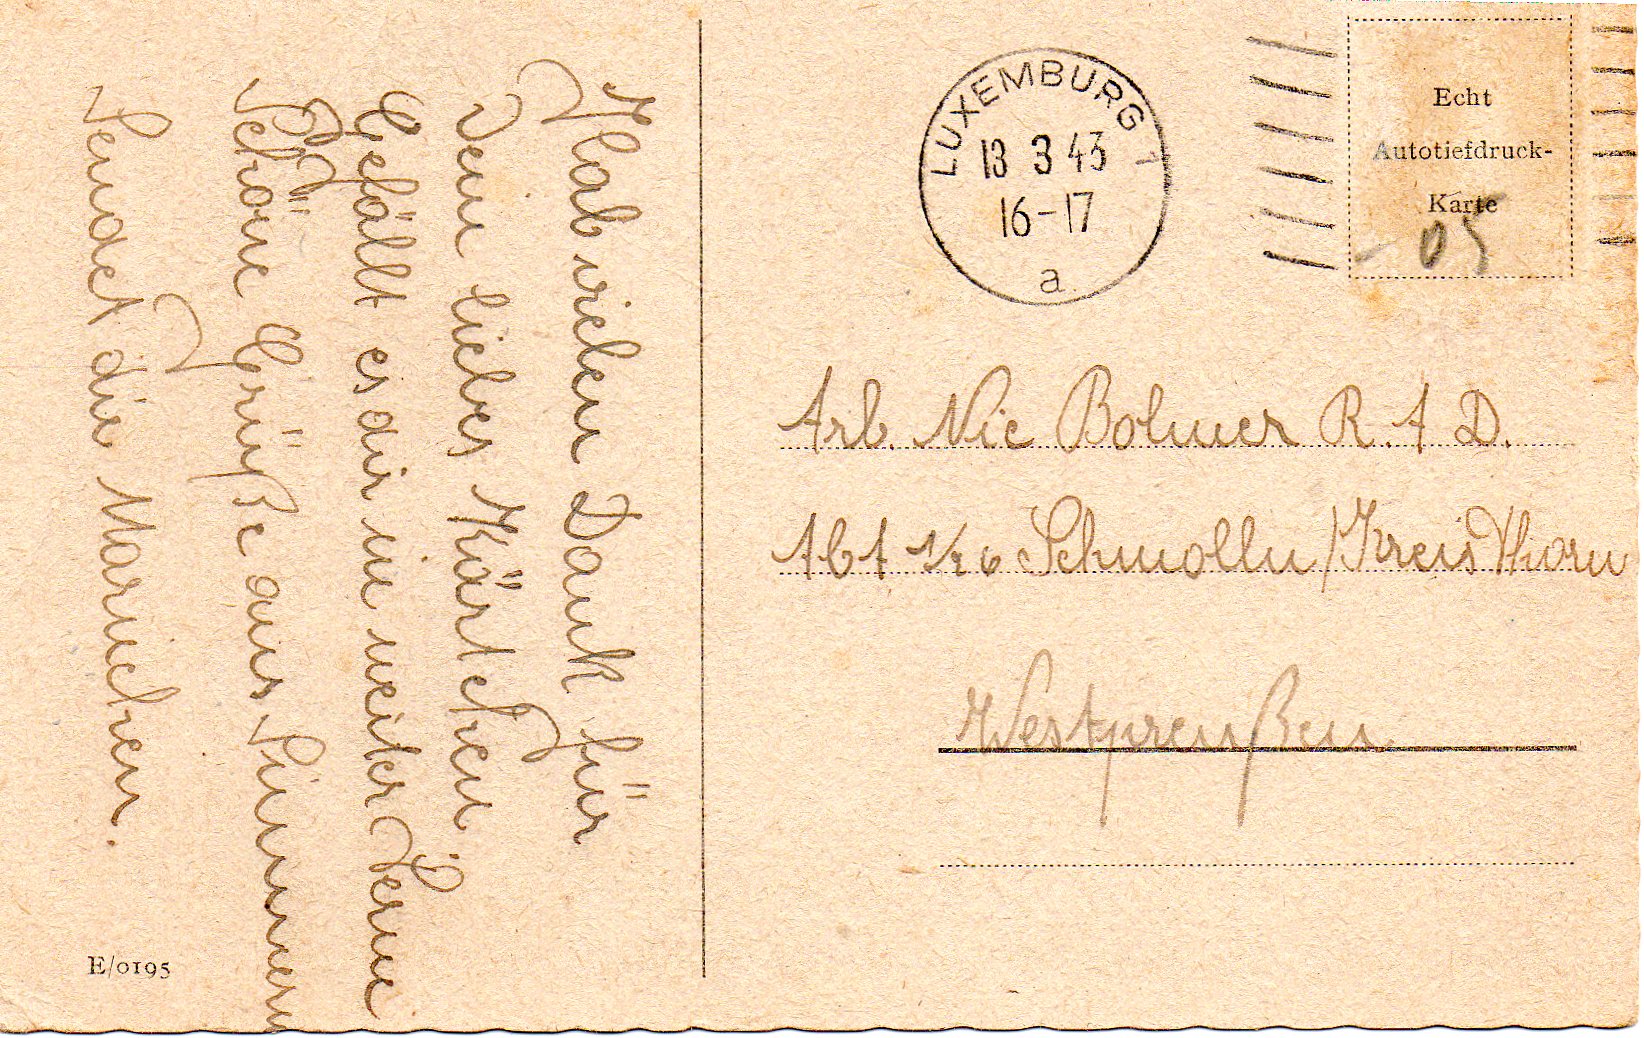 Hab vielen Dank für
Dein liebes Kärtchen.
Gefällt es dir nie weiter
Schöne Grüße aus
Sendet die Mariechen.
E/0195
LUXEMBURG 1
13 3 43
16-17
a
Echt
Autotiefdruck-
Karte
05
Arb. Nic Bolmer R. A D.
Abt Schmolln/Kreis Thorn
Westpreußen